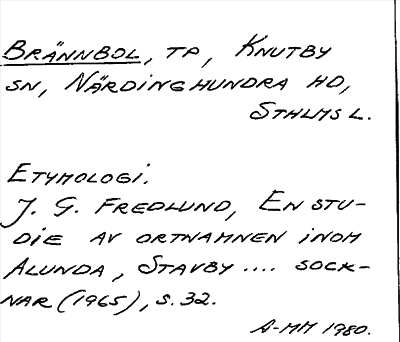 BRÄNNBOL, TP, KNUTBY
SN, NÄRDINGHUNDRA HD,
STHLMS L.
ETYMOLOGI.
J. G. FREDLUND, EN STU-
DIE AV ORTNAMNEN INOM
ALUNDA, STAVBY .... SOCK-
NAR (1965), S. 32.
A-MM 1980.